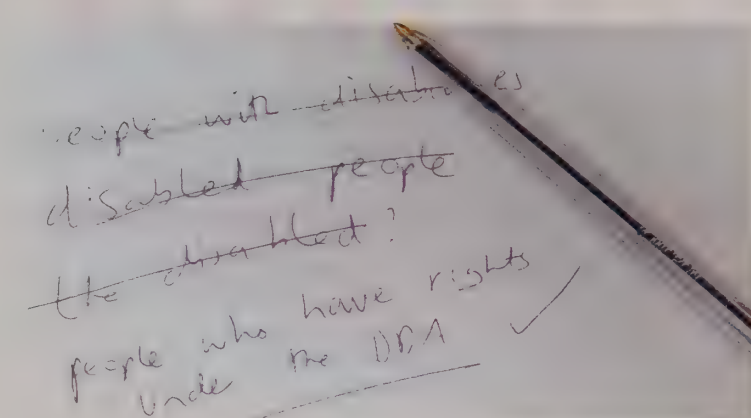 people with disabilities
disabled people
the disabled?
people who have rights
under the DDA ✓